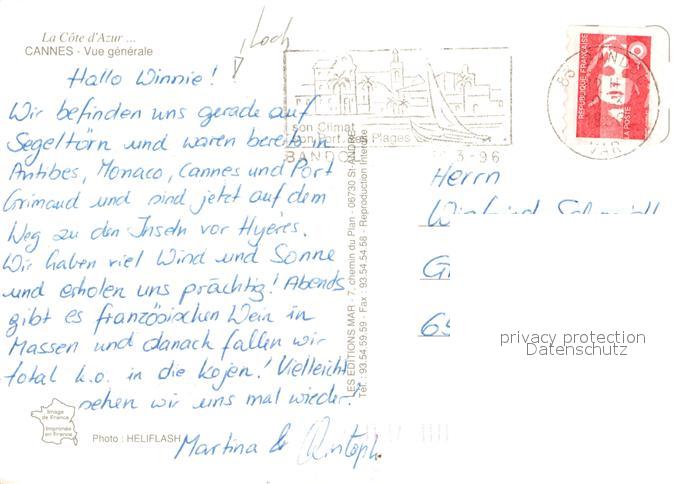 La Côte d'Azur ...
CANNES - Vue générale
Loch
Hallo Winnie!
Wir befinden uns gerade auf
Segeltörn und waren bereits in
Antibes, Monaco, Cannes und Port
Grimaud und sind jetzt auf dem
Weg zu den Inseln vor Hyères.
Wir haben viel Wind und Sonne
und erholen uns prächtig! Abends
gibt es französischen Wein in
Massen und danach fallen wir
total k.o. in die Kojen! Vielleicht
sehen wir uns mal wieder.
Martina &
Image
de France
Imprimée
en France
Photo : HELIFLASH
LES EDITIONS MAR - 7, chemin du Plan - 06730 St-ANDRE
Tél : 93.54.59.59 - Fax : 93.54.54.58 - Reproduction interdite
son Climat
son Port Plages
BANDO
3-96
REPUBLIQUE FRANÇAISE
LA POSTE
83 VAR
Herrn
65
privacy protection
Datenschutz